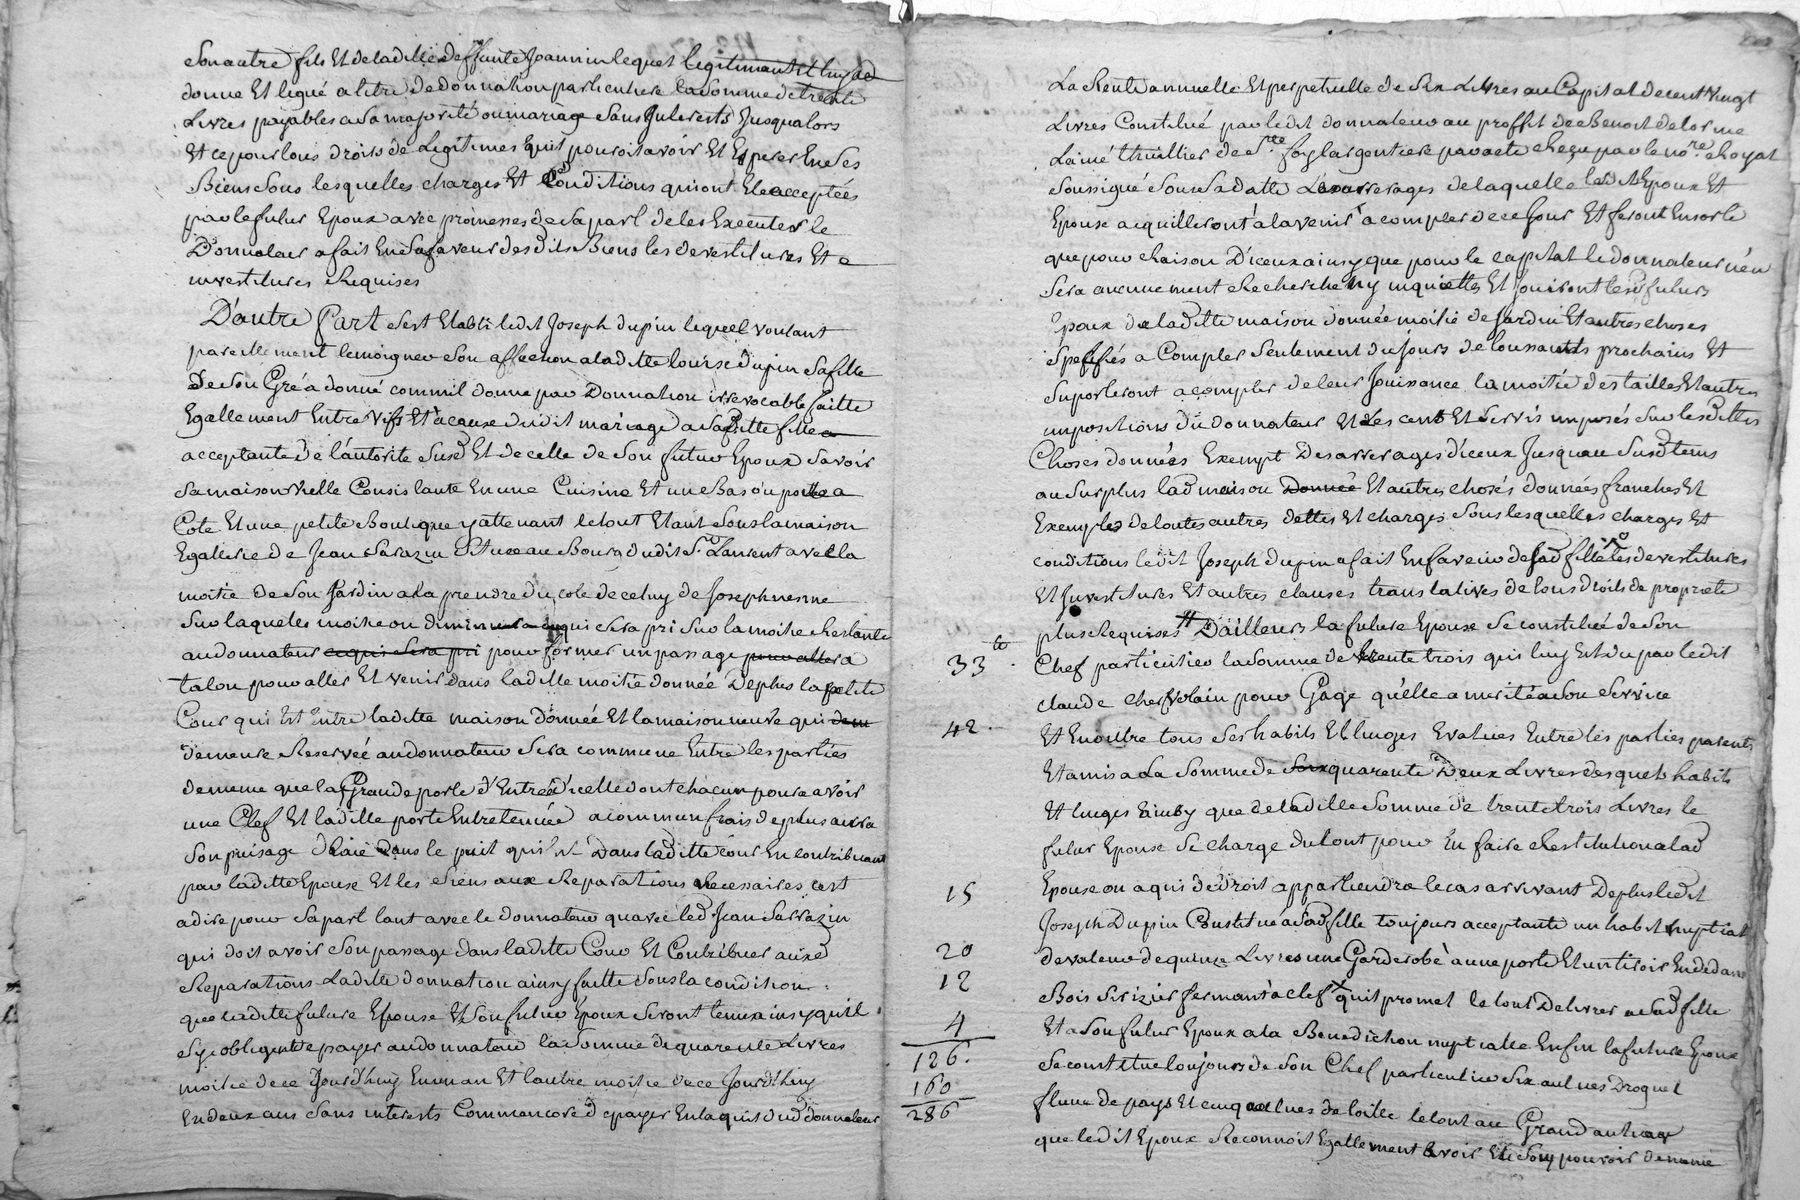 Son autre fils Et de laditte deffunte Joannin lequel legitimant Et luy a
donne Et legué a titre de donnation particuliere la Somme de trente
Livres payables a Sa majorité ou mariage Sans Interests Jusqualors
Et ce pour tous droits de Legitimes quil pouroit avoir Et Esperer En Ses
Biens Sous lesquelles charges Et Conditions qui ont Ete acceptées
par le futur Epoux avec promesses de Sa part de les Executer le
Donnateur a fait En Sa faveur desdits Biens les devestitures Et
investitures Requises
D'autre Part Sest Etabli ledit Joseph dupin lequel voulant
pareillement temoigner Son affection a laditte Louise dupin Sa fille
De Son Gré a donné comm'il donne par Donnation irrevocable faitte
Egallement Entre Vifs Et à cause dudit mariage a Saditte fille
acceptante de l'autorite Susd Et de celle de Son futur Epoux Savoir
Sa maison vielle Consistante En une Cuisine Et un Bas ou porte a
Coté Et une petite Boutique y attenant le tout Etant Sous la maison
Egallerie de Jean Sarazin Située au Bourg dudit St Laurent avec la
moitie de Son Jardin a la prendre du coté de celuy de Joseph
Sur laquelle moitie ou qui Sera pri Sur la moitie Restante
au donnateur ce qui Sera pri pour former un passage pour aller a
talon pour aller Et venir dans laditte moitié donnée De plus la petite
Cour qui Est Entre laditte maison donnée Et la maison neuve qui dem
demeure Reservée au donnateur Sera commune Entre les parties
de meme que la Grande porte d'Entrée d'icelle dont chacun poura avoir
une Clef Et laditte porte Entretenuée a commun frais de plus aura
Son puisage dans le puit qui Est Dans laditte cour En contribuant
par laditte Epouse Et les Siens aux Reparations Necessaires cest
a dire pour Sa part tant avec le donnateur quavec led Jean Sarrazin
qui doit avoir Son passage dans laditte Cour Et Contribuer auxd
Reparations Laditte donnation ainsy faitte Sous la condition
que laditte future Epouse Et Son futur Epoux Seront tenux ainsy quil
Sy obligent de payer au donnateur la Somme de quarente Livres
moitie de ce Jourdhuy En un an Et l'autre moitie de ce Jourdhuy
En deux ans Sans interests Comm'encore de payer En laquit dud donnateur
La Rente annuelle Et perpetuelle de Six Livres au Capital de cent vingt
Livres Constitué par ledit donnateur au proffit de Benoit delorme
Lainé thuillier de Ste foy largentiere par acte Recu par le nore chogat
Soussigné Sous Sa datte Les arrerages de laquelle lesdits Epoux Et
Epouse acquitteront à l'avenir à compter de ce Jour Et feront En Sorte
que pour Raison D'iceux ainsy que pour le capital le donnateur nén
Sera aucunement Recherche ny inquietté Et Jouiront lesd futurs
Epoux de laditte maison donnée moitié de Jardin Et autres choses
Speffiés a Compter Seulement du Jours de toussaints prochains Et
Suporteront a compter de leur Jouissance la moitié des tailles Et autres
impositions du donnateur Et des cens Et Servis imposés Sur lesdittes
Choses données Exempt Des arrerages d'iceux Jusquau Susd tems
au Surplus lad maison Donnée Et autres choses données franches Et
Exemptes de toutes autres dettes Et charges Sous lesquelles charges Et
conditions ledit Joseph dupin a fait En faveur de Sad fille les devestitures
Et Investitures Et autres clauses translatives de tous droits de proprieté
plus Requises D'ailleurs la future Epouse Se constitué de Son
33 tt Chef particulier la Somme de trente trois qui luy Est du par ledit
claude pour Gage qu'elle a merité a Son Service
42 Et En outre tous Ses habits Et linges Evalues Entre les parties parents
Et amis a La Somme de Soix quarente Deux Livres desquels habits
Et linges Ainsy que de laditte Somme de trente trois Livres le
futur Epouse Se charge du tout pour En faire Restitution alad
15 Epouse ou a qui de droit appartiendra le cas arrivant De plus ledit
Joseph Dupin Constitué a Sad fille toujours acceptante un habit nuptial
20 de valeur de quinze Livres une Garderobè à une porte Et un tiroir En dedans
12 Bois Serizier fermant à clef X quil promet le tout Delivrer a Sad fille
4 Et a Son futur Epoux a la Benediction nuptialle Enfin la future Epouse
126 Se constitue toujours de Son Chef particulier Six aulnes Droguet
160 fleure de pays Et cinq aulnes de toille le tout au
286 que ledit Epoux Reconnoit Egallement avoir En Son pouvoir de meme